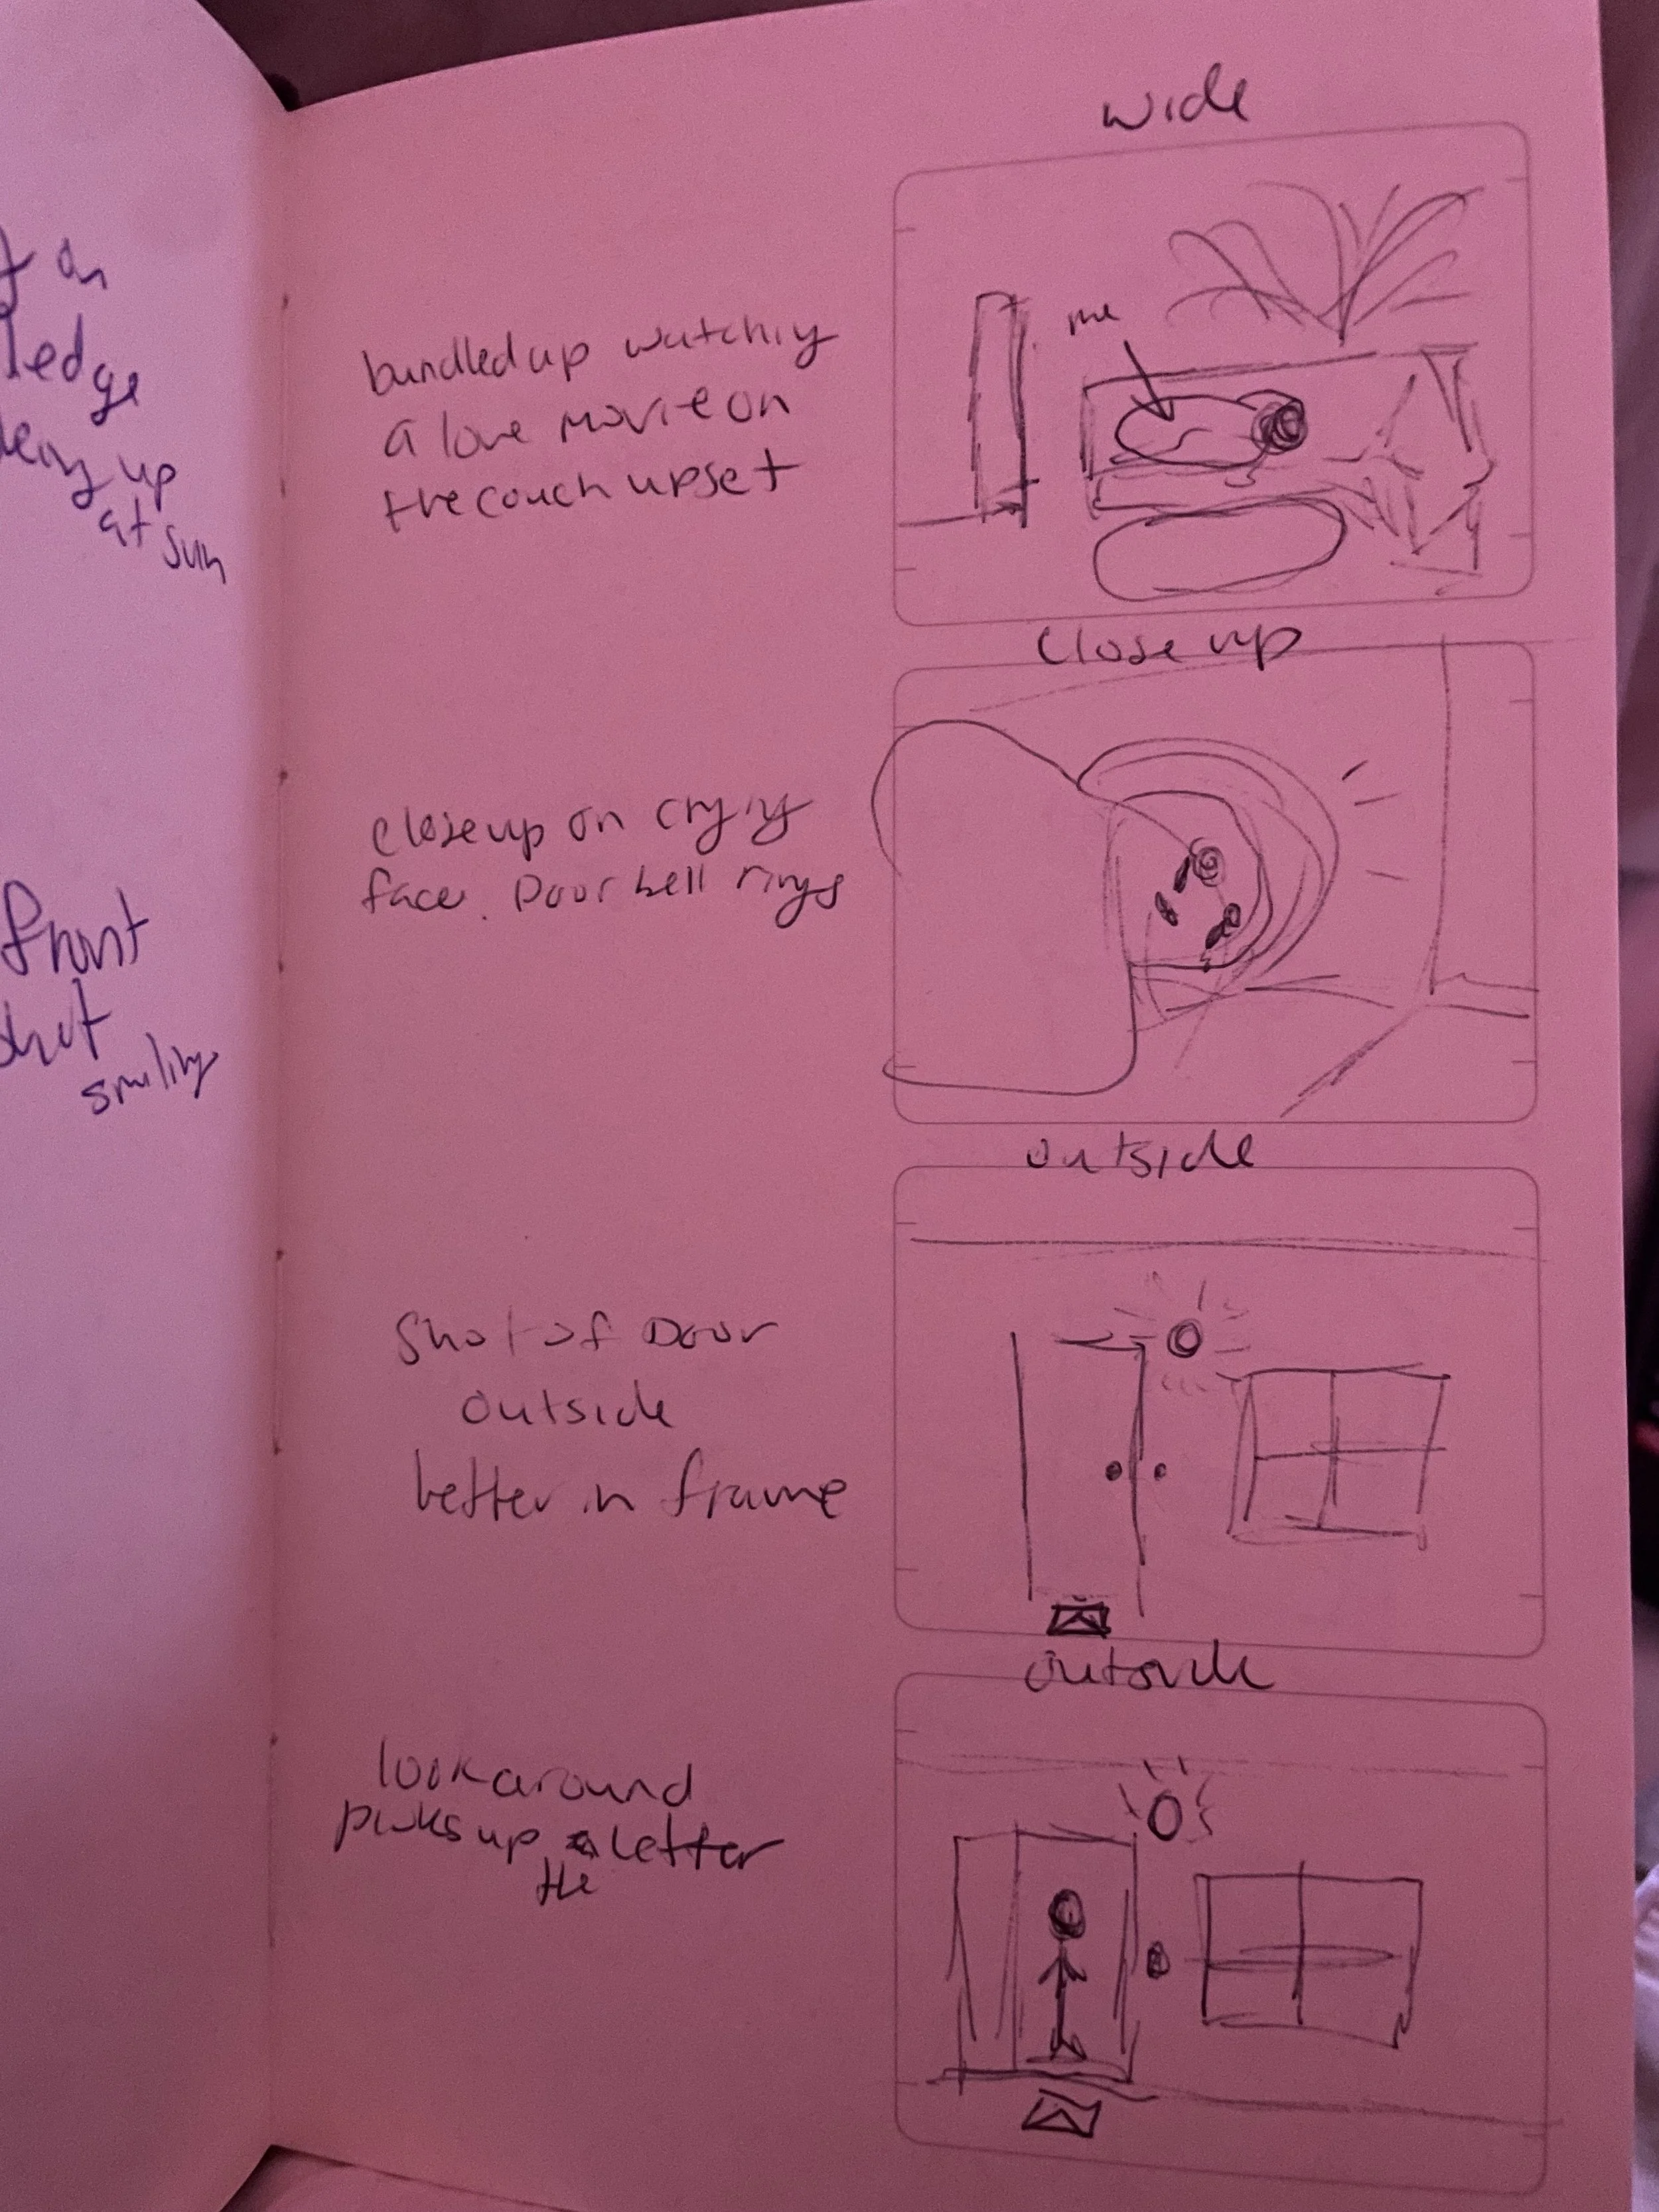 on
ledge
up
at sun
front
shot
smiling
wide
me
bundled up watching
a love movie on
the couch upset
close up
closeup on crying
face. Door bell rings
outside
Shot of Door
outside
better in frame
outside
look around
picks up a letter
the